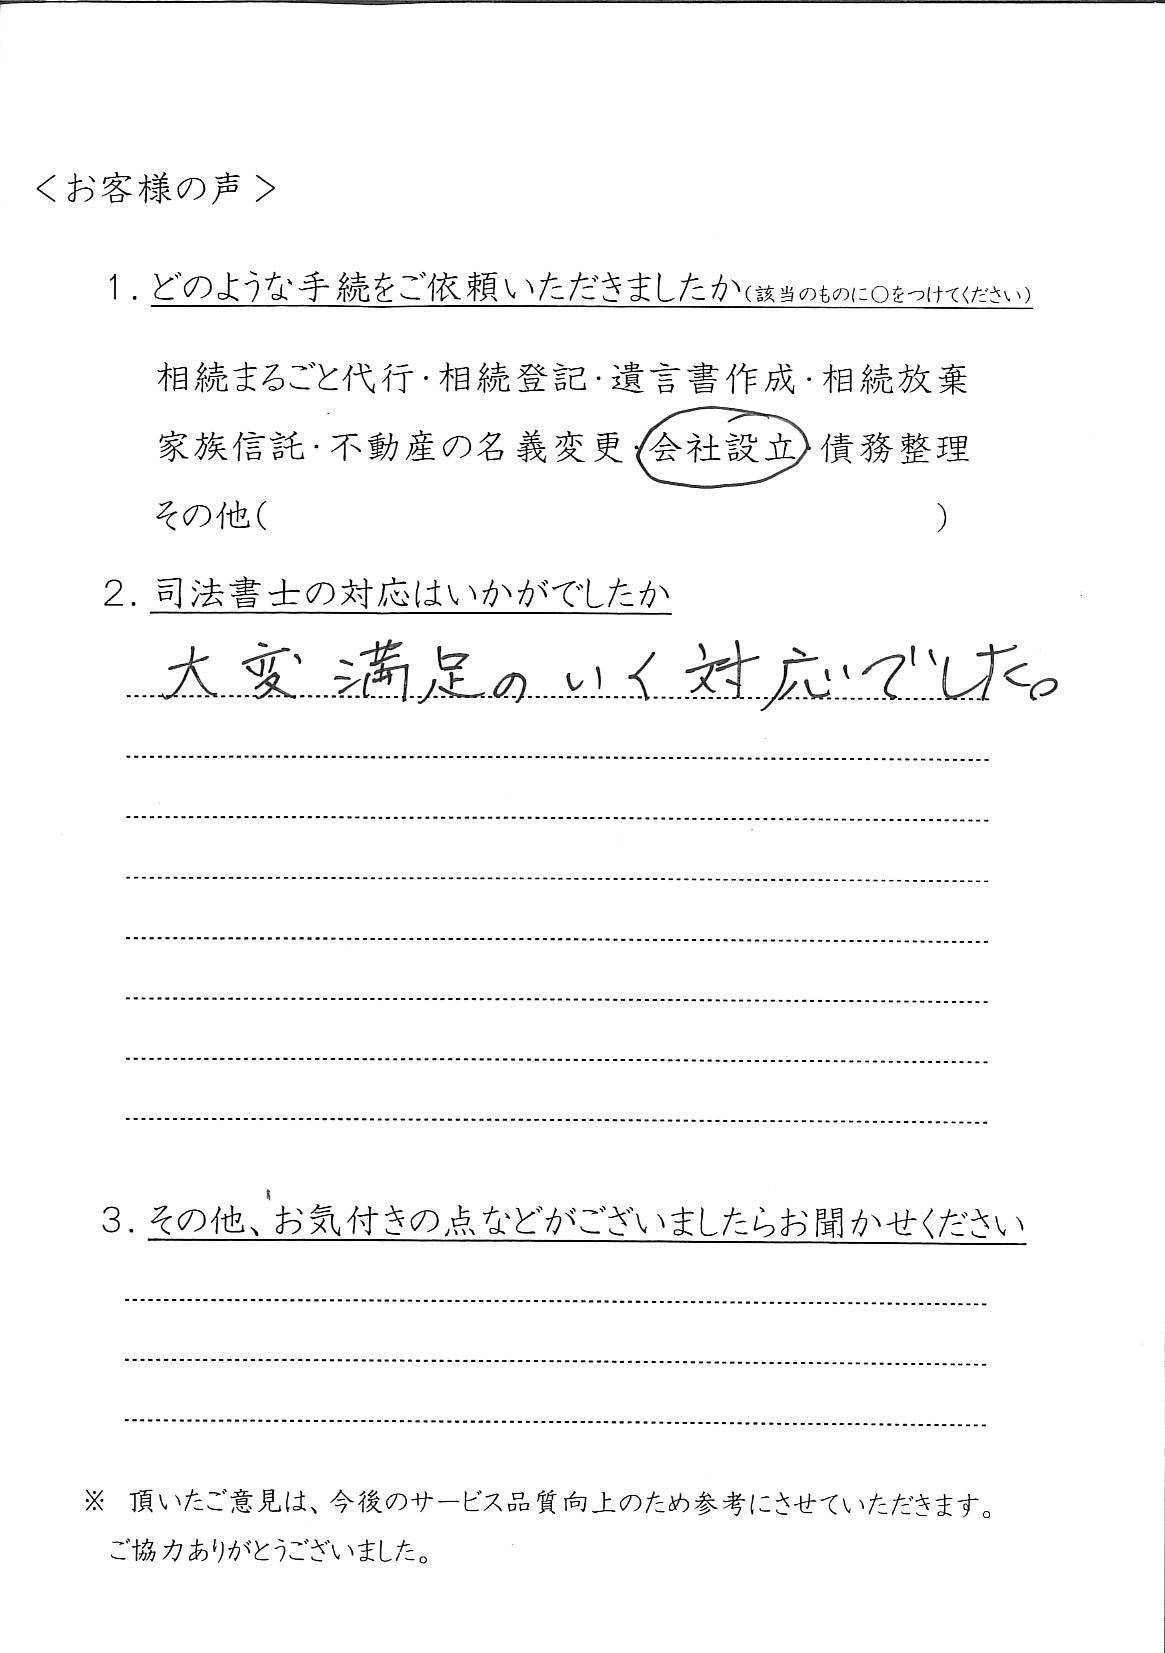 ＜お客様の声＞
1. どのような手続をご依頼いただきましたか(該当のものに○をつけてください)
相続まるごと代行・相続登記・遺言書作成・相続放棄
家族信託・不動産の名義変更・会社設立・債務整理
その他( )
2. 司法書士の対応はいかがでしたか
大変満足のいく対応でした。
3. その他、お気付きの点などがございましたらお聞かせください
※ 頂いたご意見は、今後のサービス品質向上のため参考にさせていただきます。
ご協力ありがとうございました。